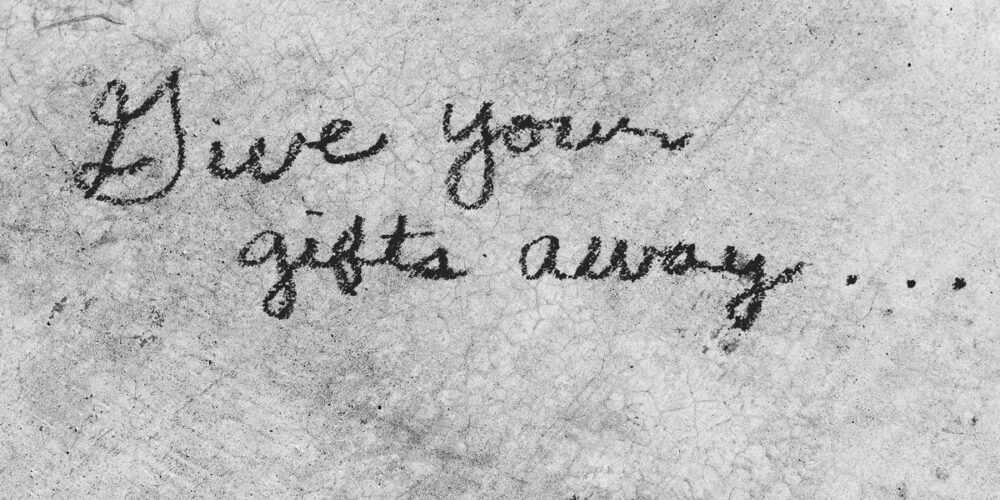 Give your
gifts away....